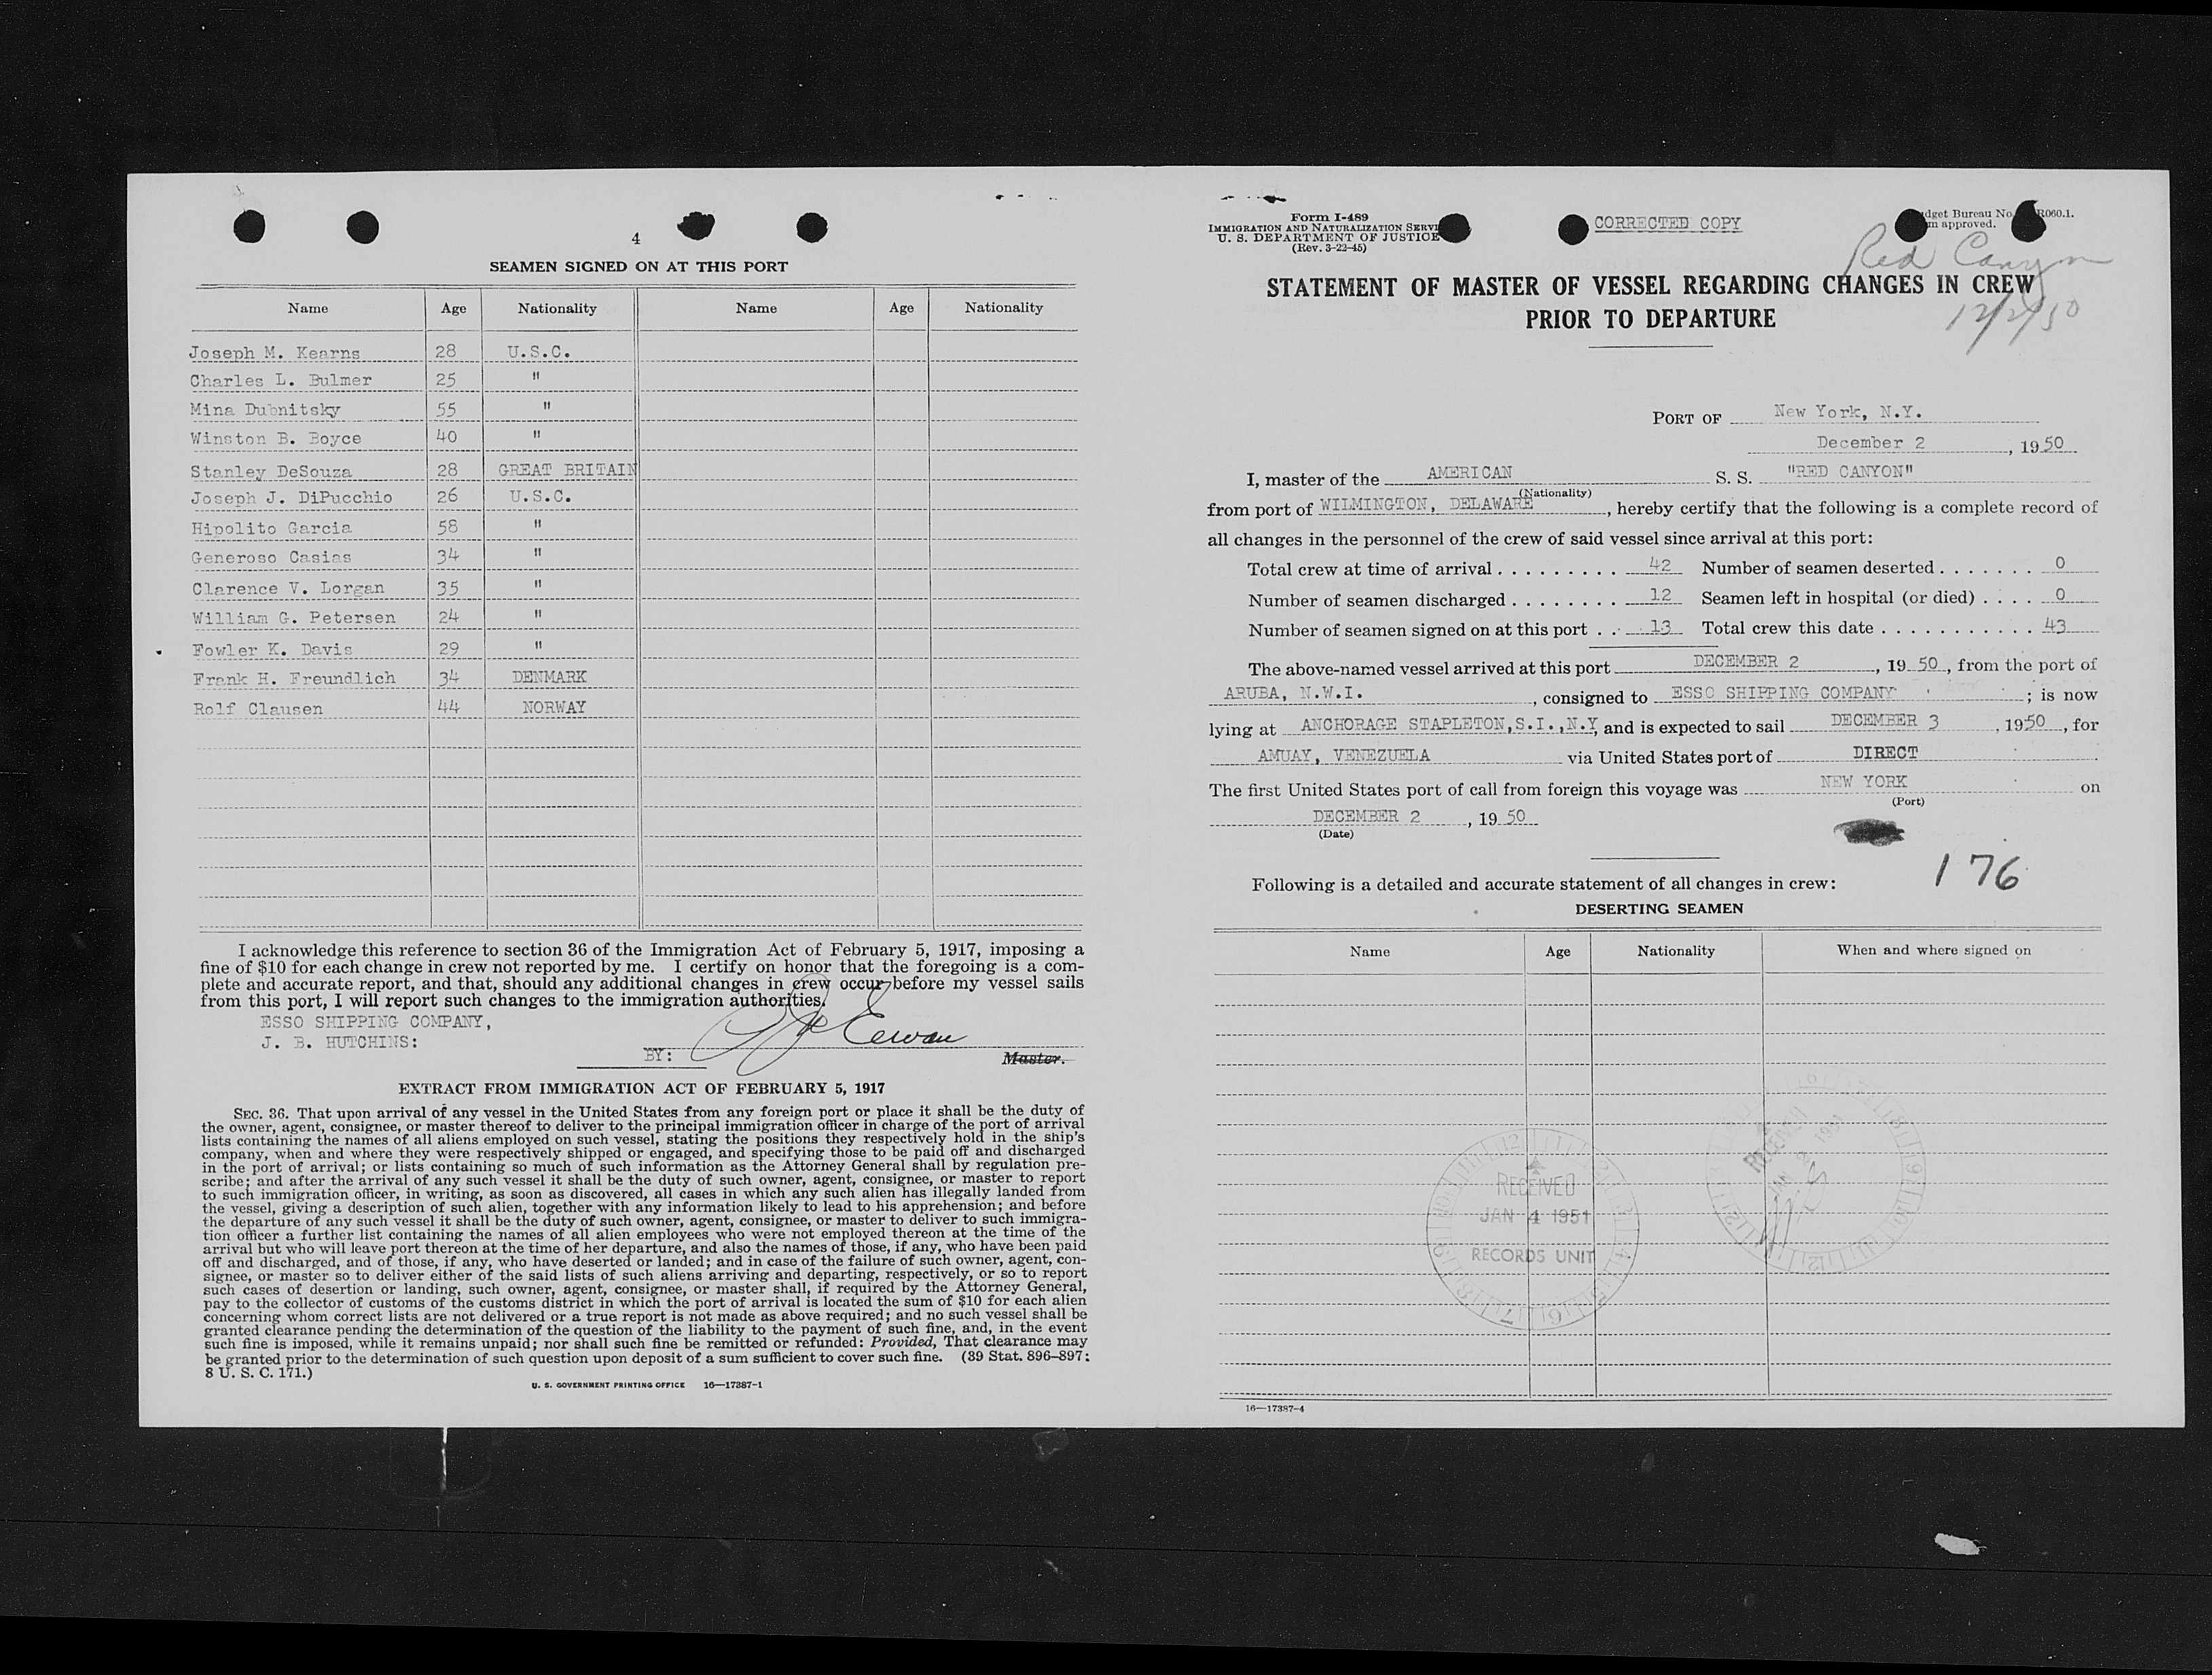 4
SEAMEN SIGNED ON AT THIS PORT
Name Age Nationality Name Age Nationality
Joseph M. Kearns 28 U.S.C.
Charles L. Bulmer 25 "
Mina Dubnitsky 55 "
Winston B. Boyce 40 "
Stanley DeSouza 28 GREAT BRITAIN
Joseph J. DiPucchio 26 U.S.C.
Hipolito Garcia 58 "
Generoso Casias 34 "
Clarence V. Lorgan 35 "
William G. Petersen 24 "
Fowler K. Davis 29 "
Frank H. Freundlich 34 DENMARK
Rolf Clausen 44 NORWAY
I acknowledge this reference to section 36 of the Immigration Act of February 5, 1917, imposing a
fine of $10 for each change in crew not reported by me. I certify on honor that the foregoing is a com-
plete and accurate report, and that, should any additional changes in crew occur before my vessel sails
from this port, I will report such changes to the immigration authorities.
ESSO SHIPPING COMPANY,
J. B. HUTCHINS:
BY: Master.
EXTRACT FROM IMMIGRATION ACT OF FEBRUARY 5, 1917
SEC. 36. That upon arrival of any vessel in the United States from any foreign port or place it shall be the duty of
the owner, agent, consignee, or master thereof to deliver to the principal immigration officer in charge of the port of arrival
lists containing the names of all aliens employed on such vessel, stating the positions they respectively hold in the ship's
company, when and where they were respectively shipped or engaged, and specifying those to be paid off and discharged
in the port of arrival; or lists containing so much of such information as the Attorney General shall by regulation pre-
scribe; and after the arrival of any such vessel it shall be the duty of such owner, agent, consignee, or master to report
to such immigration officer, in writing, as soon as discovered, all cases in which any such alien has illegally landed from
the vessel, giving a description of such alien, together with any information likely to lead to his apprehension; and before
the departure of any such vessel it shall be the duty of such owner, agent, consignee, or master to deliver to such immigra-
tion officer a further list containing the names of all alien employees who were not employed thereon at the time of the
arrival but who will leave port thereon at the time of her departure, and also the names of those, if any, who have been paid
off and discharged, and of those, if any, who have deserted or landed; and in case of the failure of such owner, agent, con-
signee, or master so to deliver either of the said lists of such aliens arriving and departing, respectively, or so to report
such cases of desertion or landing, such owner, agent, consignee, or master shall, if required by the Attorney General,
pay to the collector of customs of the customs district in which the port of arrival is located the sum of $10 for each alien
concerning whom correct lists are not delivered or a true report is not made as above required; and no such vessel shall be
granted clearance pending the determination of the question of the liability to the payment of such fine, and, in the event
such fine is imposed, while it remains unpaid; nor shall such fine be remitted or refunded: Provided, That clearance may
be granted prior to the determination of such question upon deposit of a sum sufficient to cover such fine. (39 Stat. 896–897;
8 U. S. C. 171.)
U. S. GOVERNMENT PRINTING OFFICE 16—17387-1
Form I-489
IMMIGRATION AND NATURALIZATION SERVI
U. S. DEPARTMENT OF JUSTICE
(Rev. 3-22-45)
CORRECTED COPY
dget Bureau No. R060.1.
m approved.
Red Canyon
12/2/50
STATEMENT OF MASTER OF VESSEL REGARDING CHANGES IN CREW
PRIOR TO DEPARTURE
PORT OF New York, N.Y.
December 2, 19 50
I, master of the AMERICAN S. S. "RED CANYON"
(Nationality)
from port of WILMINGTON, DELAWARE, hereby certify that the following is a complete record of
all changes in the personnel of the crew of said vessel since arrival at this port:
Total crew at time of arrival . . . . . . . . . 42 Number of seamen deserted . . . . . . . 0
Number of seamen discharged . . . . . . . . 12 Seamen left in hospital (or died) . . . . 0
Number of seamen signed on at this port . . 13 Total crew this date . . . . . . . . . . . 43
The above-named vessel arrived at this port DECEMBER 2, 19 50, from the port of
ARUBA, N.W.I., consigned to ESSO SHIPPING COMPANY; is now
lying at ANCHORAGE STAPLETON,S.I.,N.Y, and is expected to sail DECEMBER 3, 1950, for
AMUAY, VENEZUELA via United States port of DIRECT
The first United States port of call from foreign this voyage was NEW YORK on
(Port)
DECEMBER 2, 19 50
(Date)
176
Following is a detailed and accurate statement of all changes in crew:
DESERTING SEAMEN
Name Age Nationality When and where signed on
RECEIVED
JAN 4 1951
RECORDS UNIT
16—17387-4